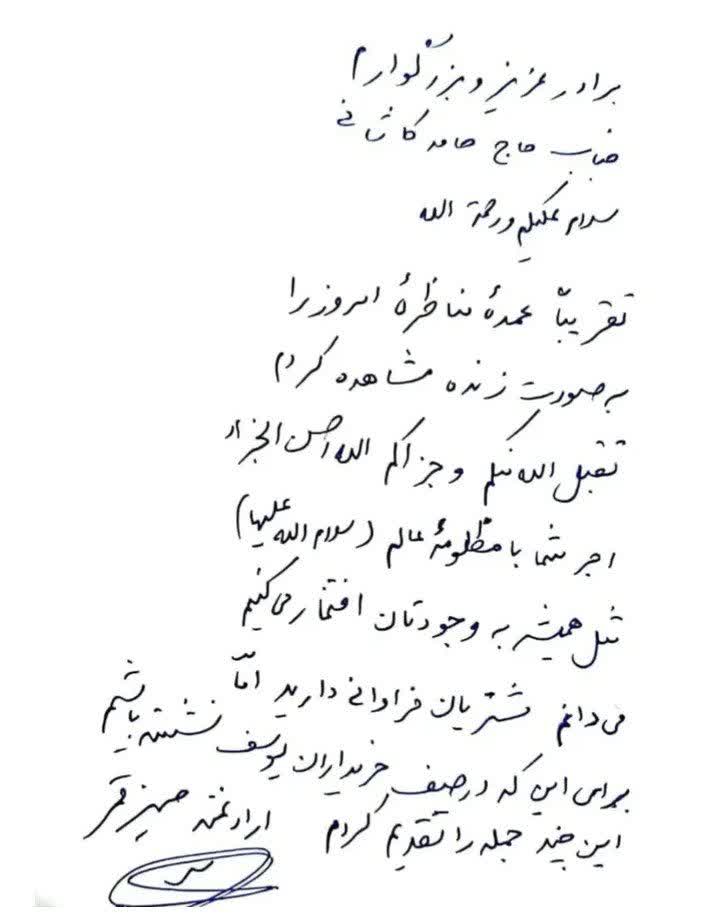 برادر عزیز و بزرگوارم
جناب حاج حامد کاشانی
سلام علیکم و رحمة الله
تقریباً عمدهٔ مناظرهٔ امروز را
به صورت زنده مشاهده کردم
تقبل الله منکم و جزاکم الله احسن الجزاء
اجر شما با مظلومهٔ عالم (سلام الله علیها)
مثل همیشه به وجودتان افتخار می‌کنیم
می‌دانم مشتریان فراوانی دارید امّا
برای این که در صف خریداران یوسف نشسته باشم
این چند جمله را تقدیم کردم
ارادتمند